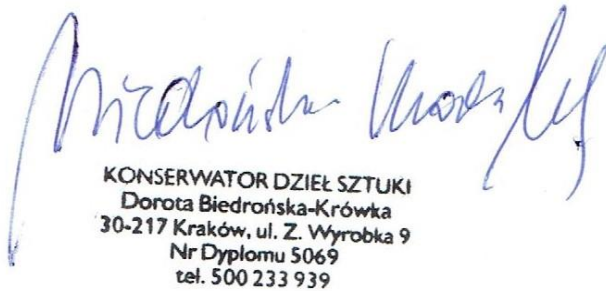 Biedrońska Krówka
KONSERWATOR DZIEŁ SZTUKI
Dorota Biedrońska-Krówka
30-217 Kraków, ul. Z. Wyrobka 9
Nr Dyplomu 5069
tel. 500 233 939